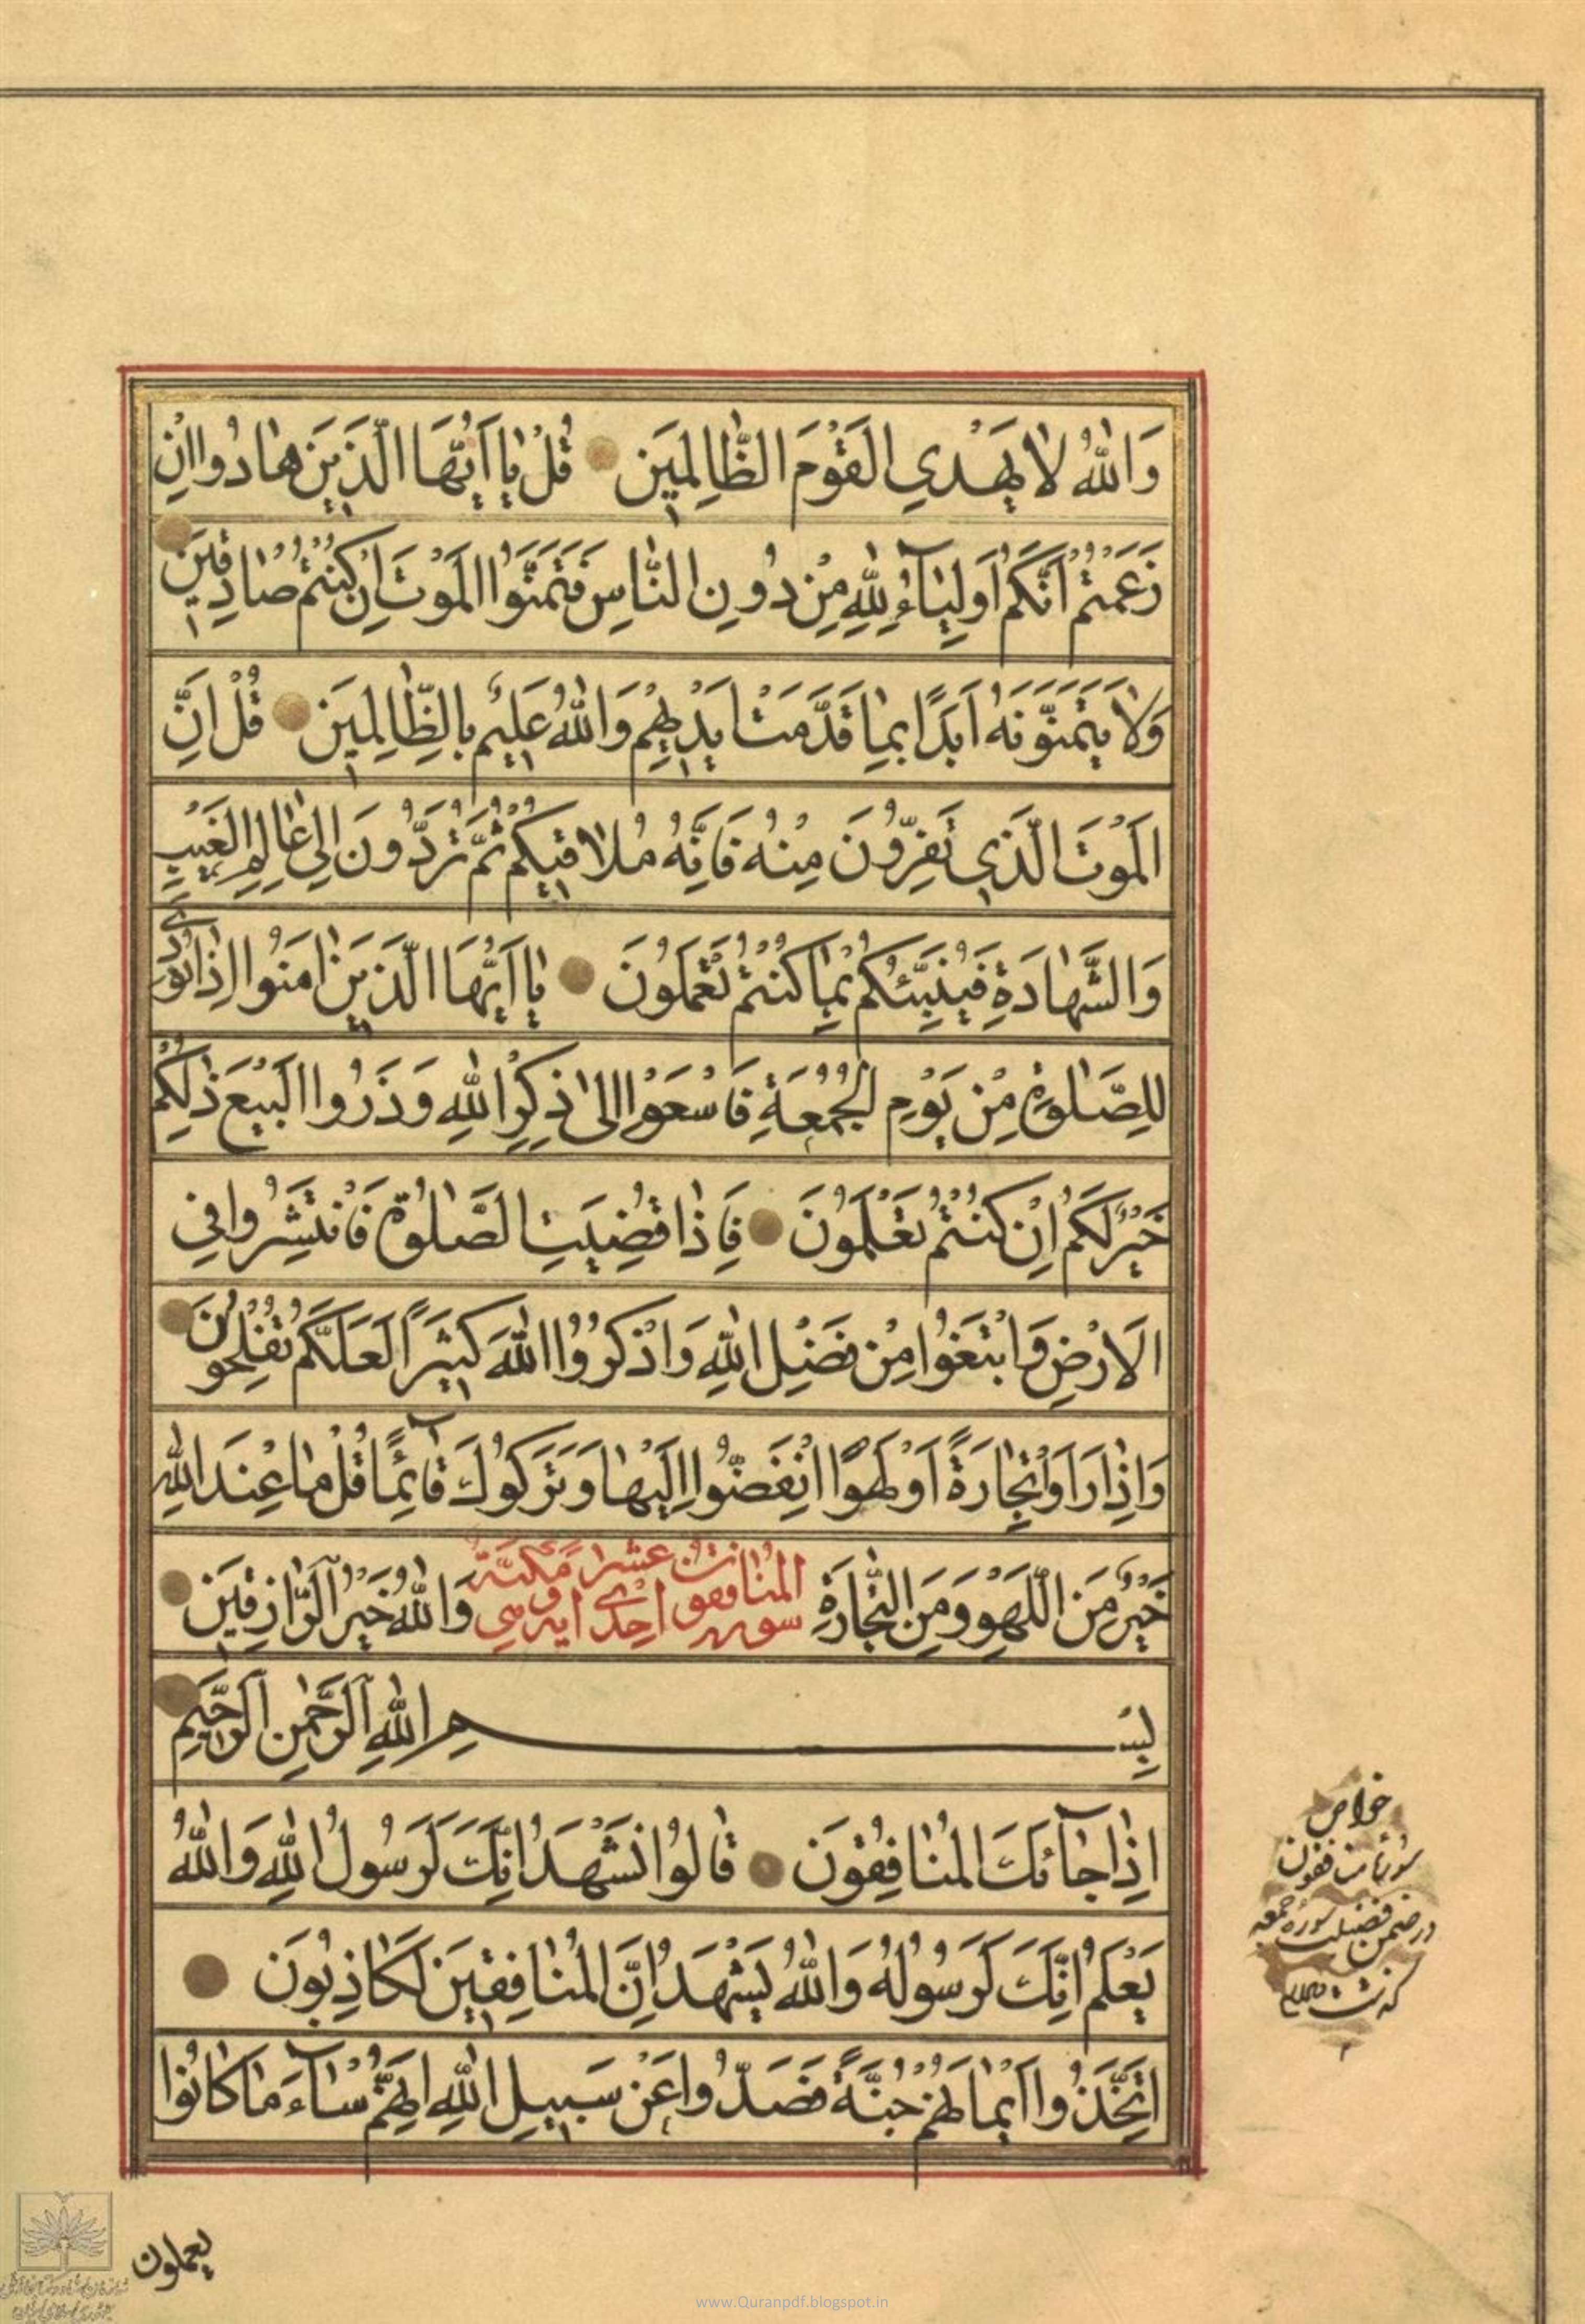 وَاللّٰهُ لاٰ يَهْدِي الْقَوْمَ الظّٰالِمينَ قُلْ يٰا اَيُّهَا الَّذينَ هٰادُوا اِنْ
زَعَمْتُمْ اَنَّكُمْ اَوْلِيٰآءُ لِلّٰهِ مِنْ دُونِ النّٰاسِ فَتَمَنَّوُا الْمَوْتَ اِنْ كُنْتُمْ صٰادِقينَ
وَلاٰ يَتَمَنَّوْنَهُ اَبَدًا بِمٰا قَدَّمَتْ اَيْديهِمْ وَاللّٰهُ عَليمٌ بِالظّٰالِمينَ قُلْ اِنَّ
الْمَوْتَ الَّذي تَفِرُّونَ مِنْهُ فَاِنَّهُ مُلاٰقيكُمْ ثُمَّ تُرَدُّونَ اِلىٰ عٰالِمِ الْغَيْبِ
وَالشَّهٰادَةِ فَيُنَبِّئُكُمْ بِمٰا كُنْتُمْ تَعْمَلُونَ يٰا اَيُّهَا الَّذينَ اٰمَنُوا اِذٰا نُودِيَ
لِلصَّلٰوةِ مِنْ يَوْمِ الْجُمُعَةِ فَاسْعَوْا اِلىٰ ذِكْرِ اللّٰهِ وَذَرُوا الْبَيْعَ ذٰلِكُمْ
خَيْرٌ لَكُمْ اِنْ كُنْتُمْ تَعْلَمُونَ فَاِذٰا قُضِيَتِ الصَّلٰوةُ فَانْتَشِرُوا فِي
الْاَرْضِ وَابْتَغُوا مِنْ فَضْلِ اللّٰهِ وَاذْكُرُوا اللّٰهَ كَثيرًا لَعَلَّكُمْ تُفْلِحُونَ
وَاِذٰا رَاَوْا تِجٰارَةً اَوْ لَهْوًا انْفَضُّوا اِلَيْهٰا وَتَرَكُوكَ قٰآئِمًا قُلْ مٰا عِنْدَ اللّٰهِ
خَيْرٌ مِنَ اللَّهْوِ وَمِنَ التِّجٰارَةِ وَاللّٰهُ خَيْرُ الرّٰازِقينَ
سوره المنافقون احدى عشر ايه مكيّة
بِسْمِ اللّٰهِ الرَّحْمٰنِ الرَّحيمِ
اِذٰا جٰآئَكَ الْمُنٰافِقُونَ قٰالُوا نَشْهَدُ اِنَّكَ لَرَسُولُ اللّٰهِ وَاللّٰهُ
يَعْلَمُ اِنَّكَ لَرَسُولُهُ وَاللّٰهُ يَشْهَدُ اِنَّ الْمُنٰافِقينَ لَكٰاذِبُونَ
اِتَّخَذُوا اَيْمٰانَهُمْ جُنَّةً فَصَدُّوا عَنْ سَبيلِ اللّٰهِ اِنَّهُمْ سٰآءَ مٰا كٰانُوا
يعملون
خواص
سورۀ منافقون
در ضمن فضيلت سوره جمعه
گذشت
www.Quranpdf.blogspot.in